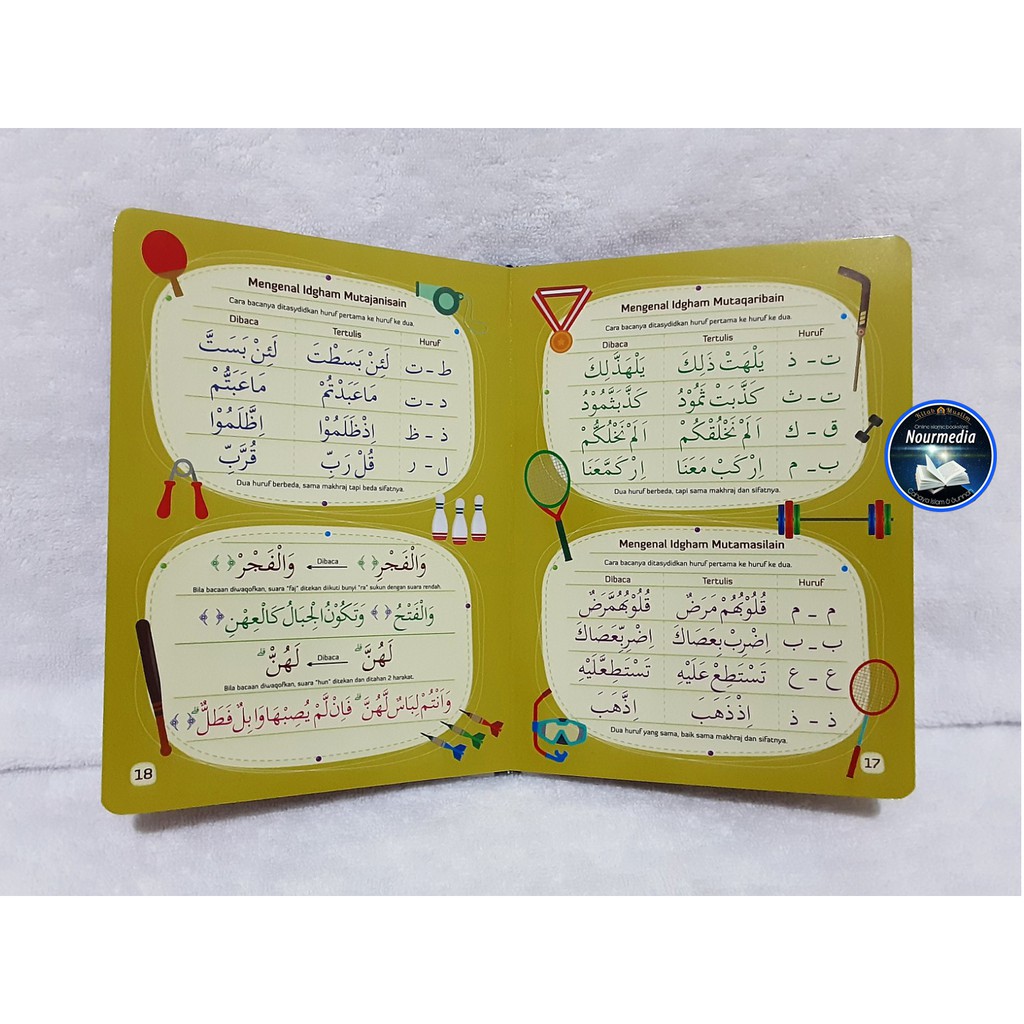 Mengenal Idgham Mutaqaribain
Cara bacanya ditasydidkan huruf pertama ke huruf ke dua.
Dibaca Tertulis Huruf
ت - ذ يَلْهَثْ ذَلِكَ يَلْهَذَّلِكَ
ت - ث كَذَّبَتْ ثَمُوْدُ كَذَّبَثَّمُوْدُ
ق - ك اَلَمْ نَخْلُقْكُمْ اَلَمْ نَخْلُكُّمْ
ب - م اِرْكَبْ مَعَنَا اِرْكَمَّعَنَا
Dua huruf berbeda, tapi sama makhraj dan sifatnya.
Mengenal Idgham Mutamasilain
Cara bacanya ditasydidkan huruf pertama ke huruf ke dua.
Dibaca Tertulis Huruf
م - م قُلُوْبُهُمْ مَرَضٌ قُلُوْبُهُمَّرَضٌ
ب - ب اِضْرِبْ بِعَصَاكَ اِضْرِبِّعَصَاكَ
ع - ع تَسْتَطِعْ عَلَيْهِ تَسْتَطِعَّلَيْهِ
ذ - ذ اِذْذَهَبَ اِذَّهَبَ
Dua huruf yang sama, baik sama makhraj dan sifatnya.
17
Mengenal Idgham Mutajanisain
Cara bacanya ditasydidkan huruf pertama ke huruf ke dua.
Dibaca Tertulis Huruf
ط - ت لَئِنْ بَسَطْتَ لَئِنْ بَسَتَّ
د - ت مَاعَبَدْتُمْ مَاعَبَتُّمْ
ذ - ظ اِذْظَلَمُوْا اِظَّلَمُوْا
ل - ر قُلْ رَبِّ قُرَّبِّ
Dua huruf berbeda, sama makhraj tapi beda sifatnya.
وَالْفَجْرِ Dibaca وَالْفَجْرْ
Bila bacaan diwaqofkan, suara "faj" ditekan diikuti bunyi "ra" sukun dengan suara rendah.
وَالْفَتْحُ وَتَكُوْنُ الْجِبَالُ كَالْعِهْنِ
لَهُنَّ Dibaca لَهُنّْ
Bila bacaan diwaqofkan, suara "hun" ditekan dan ditahan 2 harakat.
وَاَنْتُمْ لِبَاسٌ لَّهُنَّ فَاِنْ لَّمْ يُصِبْهَا وَابِلٌ فَطَلٌّ
18
Kitab Muslim
Online islamic bookstore
Nourmedia
Cahaya Islam & Sunnah